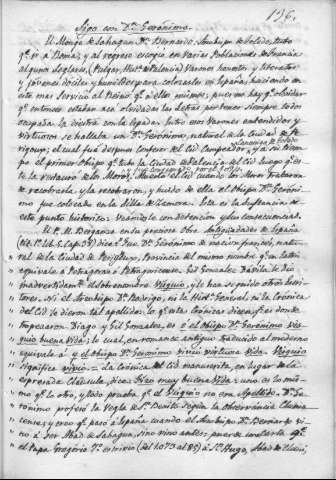 136.
Sigo con Dn. Gerónimo.
El Monge de Sahagun Dn. Bernardo, Arzobispo de Toledo, tubo
qe. ir a Roma, y al regreso escogió en varias Poblaciones de Francia
algunos Seglares, (Pulgar, Hist. de Palencia) Varones honestos, y literatos
y jóvenes dóciles para colocarlos en España, haciendo en
esto mas Servicio al Reino qe. a ellos mismos, pues no hay qe. olvidar
qe. entonces estaban aca olvidadas las Letras por tener siempre todos
ocupada la diestra con la espada. Entre esos Varones entendidos y
virtuosos se hallaba un Dn. Gerónimo, natural de la Ciudad de
el cual fué despues Confesor del Cid Campeador, y a su tiempo
pe el primero Obispo qe. tubo la Ciudad de Valencia del Cid luego qe. es-
te la rescató de los Moros. Muerto el Cid los Moros trataron
de recobrarla, y la recobraron, y huido de ella el Obispo Dn. Geróni-
mo fue colocado en la Silla de Zamora. Esta es la sustancia de
este punto histórico. Veámoslo con detención y sus consecuencias.
El P. M. Berganza en su preciosa Obra Antigüedades de España
dice q. fue Dn. Gerónimo de nacion francés, natu-
ral de la Ciudad de Provincia del mismo nombre qe. en latin
equivale á Petragoras o Petragoricense. Gil Gonzalez Davila le dió
inadvertidamte. el sobrenombre Visquio, y le han seguido otros Escri-
tores. Ni el Arzobispo Dn. Rodrigo, ni la Histª. General, ni la Crónica
del Cid le dieron tal apellido: lo qe. estas Crónicas dicen, y es donde
tropezaron Diago y Gil Gonzalez, es é el Obispo Dn. Geronimo vis-
quio buena Vida; lo cual, en romance antiguo traducido al moderno
equivale á y el Obispo Dn. Geronimo vivió virtuosa vida. Visquio
significa vivió. La Crónica del Cid manuscrita, en lugar de la
expresada Cláusula, dice Fizo muy buena Vida: uno es lo mis-
mo qe. lo otro, y todo prueba qe. el Visquio no era Apellido. Dn. Ge-
rónimo profesó la Regla de Sn. Benito según la Observancia Clunia-
cense, y creo qe. pasó á España cuando el Arzobispo Dn. Bernardo vi-
no á ser Abad de Sahagun, sino vino antes: pues se consta qe.
el Papa Gregorio 7º escrivia (del 1073 al 85) á Sn. Hugo, Abad de Cluni,